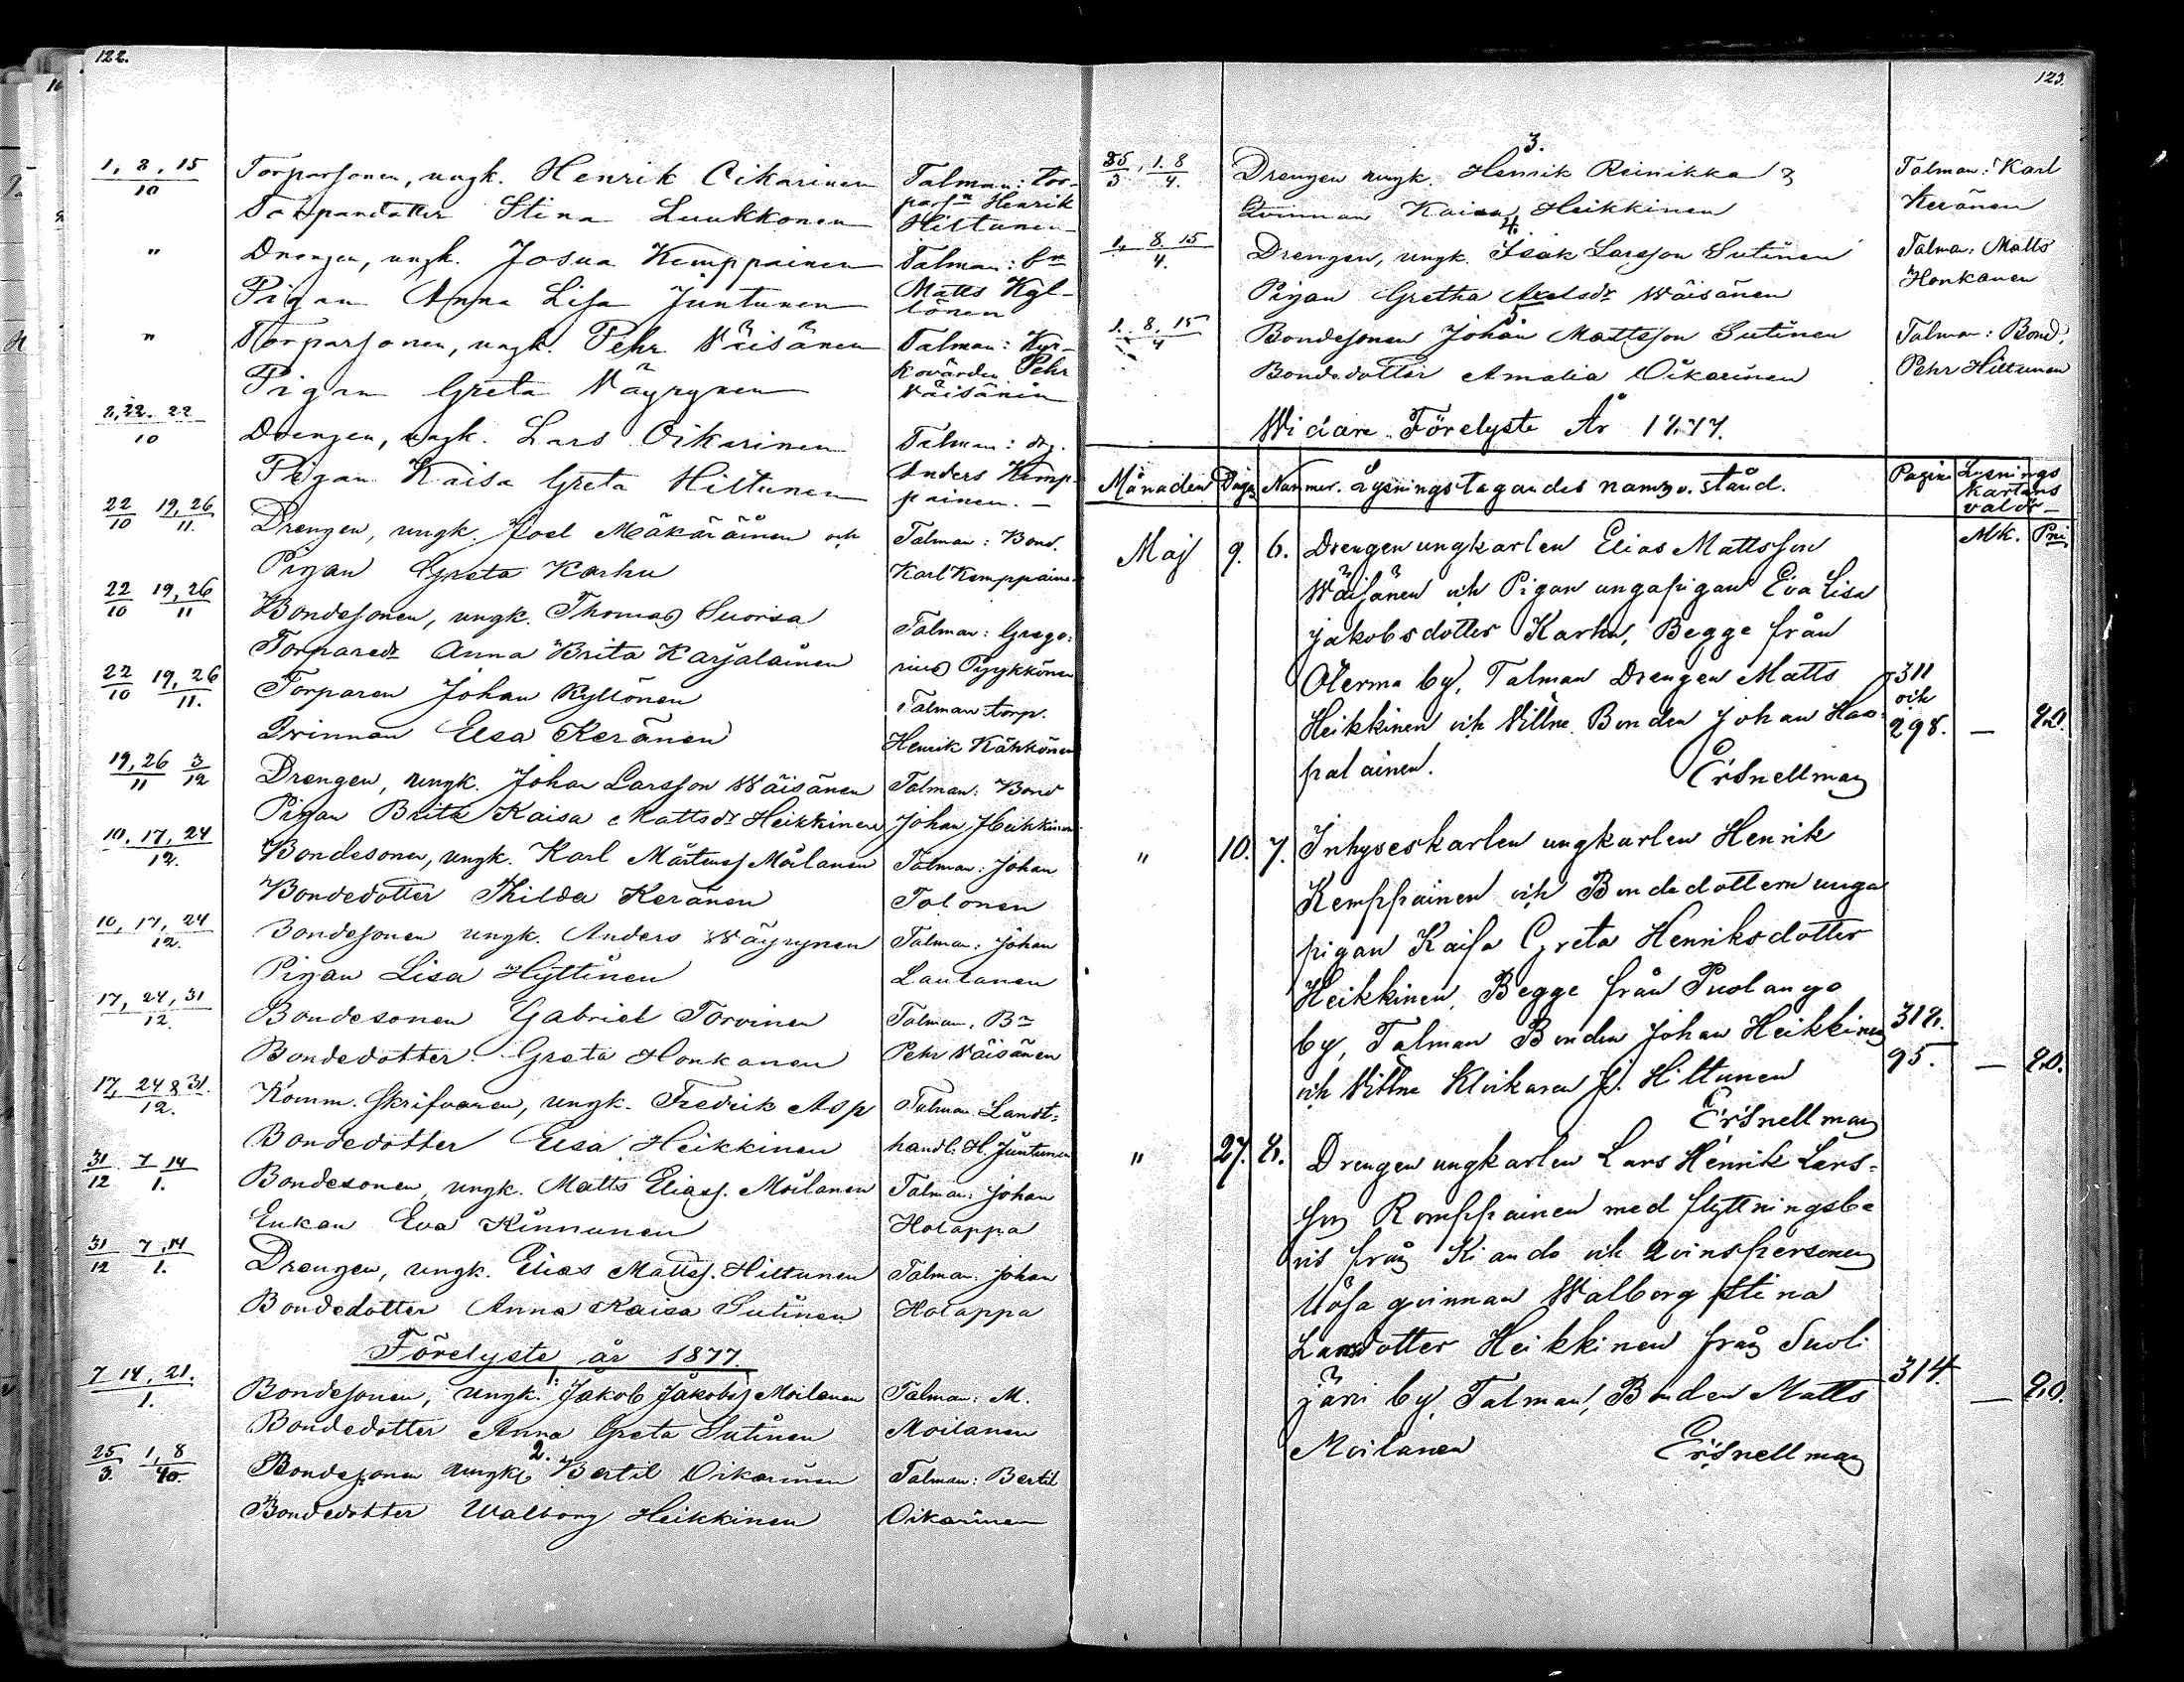 122.
1, 8, 15 / 10 Torparsonen, ungk. Henrik Oikarinen Talman: Tor-
parsn Henrik
Torparedotter Stina Luukkonen Hiltunen
" Drengen, ungk. Josua Kemppainen Talman: Bn
Pigan Anna Lisa Juntunen Matts Kyl-
lönen
" Torparsonen, ungk. Pehr Väisänen Talman: Kyr-
kovärden Pehr
Pigan Greta Väyrynen Väisänen
22 / 10 Drengen, ungk. Lars Oikarinen Talman: dr.
Pigan Kaisa Greta Hiltunen Anders Kemp-
painen. -
22/10 19,26/11. Drengen, ungk. Joel Mäkäräinen och Talman: Bond.
Pigan Greta Karhu Karl Kemppaine
22/10 19,26/11 Bondesonen, ungk. Thomas Suorsa Talman: Grego:
Torparedr Anna Brita Karjalainen rius Pyykkönen
22/10 19,26/11. Torparen Johan Kyllönen Talman torp.
Qvinnan Elsa Keränen Henrik Kähkönen
19,26/11 3/12 Drengen, ungk. Johan Larsson Wäisänen Talman: Bond
Pigan Brita Kaisa Mattsdr Heikkinen Johan Heikkinen
10, 17, 24 / 12. Bondesonen, ungk. Karl Mårtenss Moilanen Talman: Johan
Bondedotter Thilda Keränen Tolonen
10, 17, 24 / 12. Bondesonen ungk. Anders Wäyrynen Talman: Johan
Pigan Lisa Hyttinen Laulanen
17, 24, 31 / 12. Bondesonen Gabriel Torvinen Talman. Bn
Bondedotter Greta Honkanen Pehr Väisänen
17, 24 & 31. / 12. Komm. Skrifvaren, ungk. Fredrik Asp Talman Landt-
Bondedotter Elsa Heikkinen handl. H. Juntunen
31/12 7 14/1. Bondesonen, ungk. Matts Eliass. Moilanen Talman: Johan
Enkan Eva Kinnunen Holappa
31/12 7,14/1. Drengen, ungk. Elias Matts. Hiltunen Talman. Johan
Bondedotter Anna Kaisa Sutinen Holappa
Förelyste år 1877.
1.
7 14, 21. / 1. Bondesonen, ungk. Jakob Jakobss Moilanen Talman: M.
Bondedotter Anna Greta Sutinen Moilanen
2.
25/3. 1,8 Bondesonen ungk. Bertil Oikarinen Talman: Bertil
Bondedotter Walborg Heikkinen Oikarinen
123.
3.
25/3, 1. 8/4. Drengen ungk. Henrik Reinikka & Talman: Karl
Qvinnan Kaisa Heikkinen Keränen
4.
1, 8 15 / 4. Drengen, ungk. Isak Larsson Sutinen Talma: Matts
Pigan Gretha Axelsdr Wäisänen Honkanen
5
1. 8. 15 / 4 Bondesonen Johan Mattsson Sutinen Talman: Bond.
Bondedotter Amalia Oikarinen Pehr Hiltunen
Widare Förelyste År 1877.
Månaden Dagen Nummer. Lysningstagandes namn o. stånd. Pagina Lysnings
kartans
valör-
Mk. Pni
Maj 9. 6. Drengen ungkarlen Elias Mattsson
Wäisänen och Pigan ungapigan Eva Lisa
Jakobsdotter Karhu, Begge från
Oterma by, Talman Drengen Matts 311
och
Heikkinen och Vittne Bonden Johan Haa- 298. — 20.
palainen. Er. Snellman
" 10. 7. Inhyseskarlen ungkarlen Henrik
Kemppainen och Bondedottern unga
pigan Kaisa Greta Henriksdotter
Heikkinen, Begge från Puolango
by, Talman Bonden Johan Heikkinen 318.
och Vittne Klockaren J. Hiltunen 95. — 20.
Er. Snellman
" 27. 8. Drengen ungkarlen Lars Henrik Lars-
son Romppainen med flyttningsbe
vis från Kiando och Qvinspersonen
lösa qvinnan Walborg Stina
Larsdotter Heikkinen från Suoli
järvi by, Talman, Bonden Matts 314. — 20.
Moilanen Er. Snellman